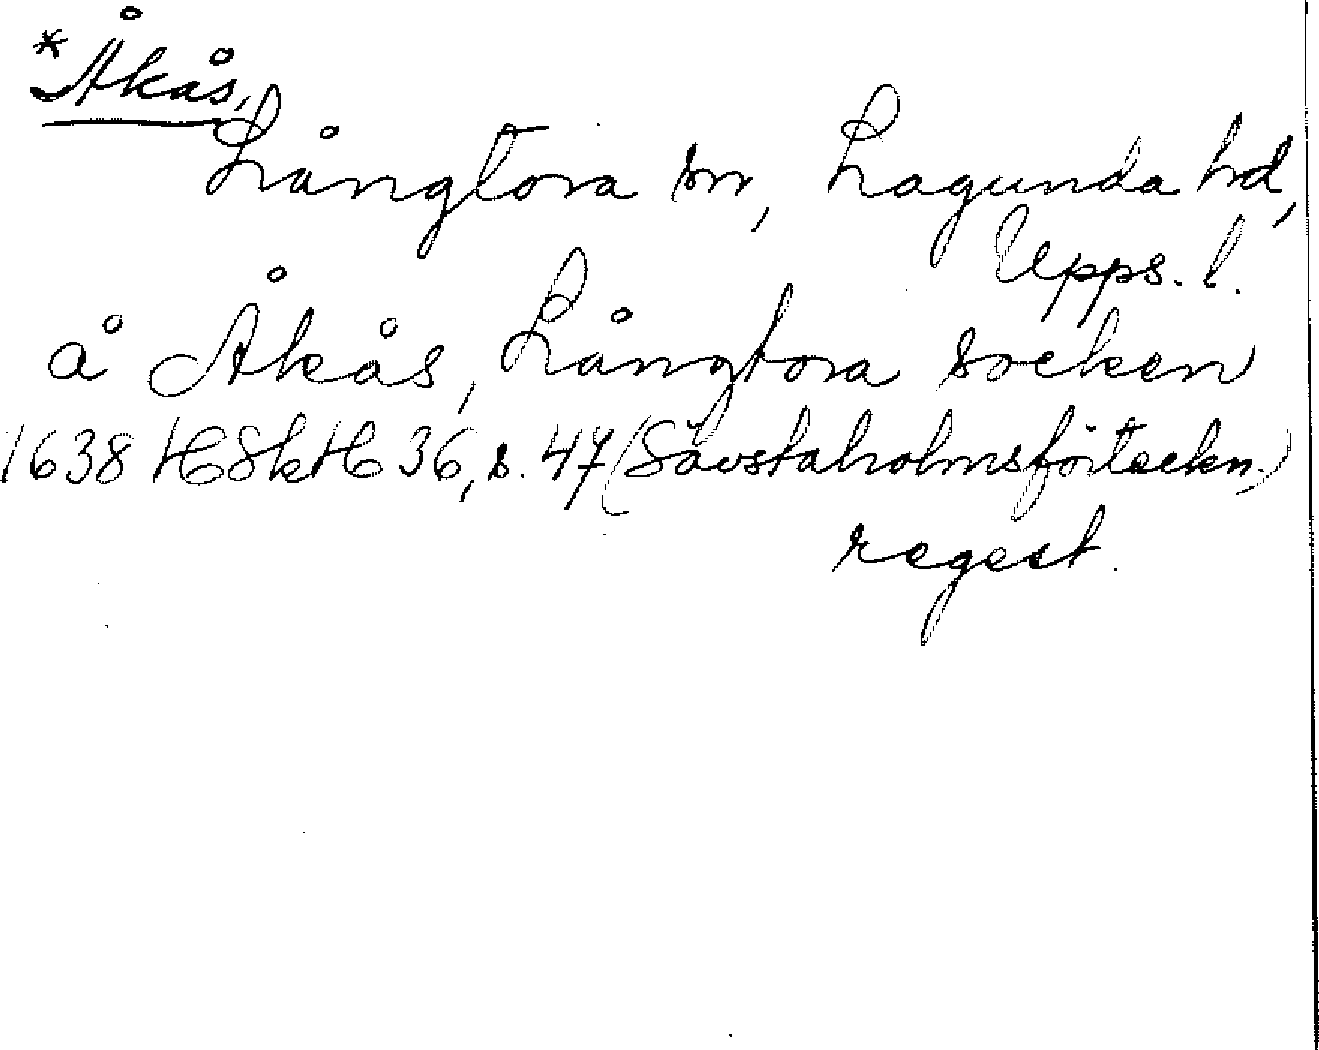 *Åkås,
Långtora sn, Lagunda hd,
Upps. l.
å Åkås, Långtora socken
1638 HSkH 36, s. 47 (Sävstaholmsförteckn.)
regest.